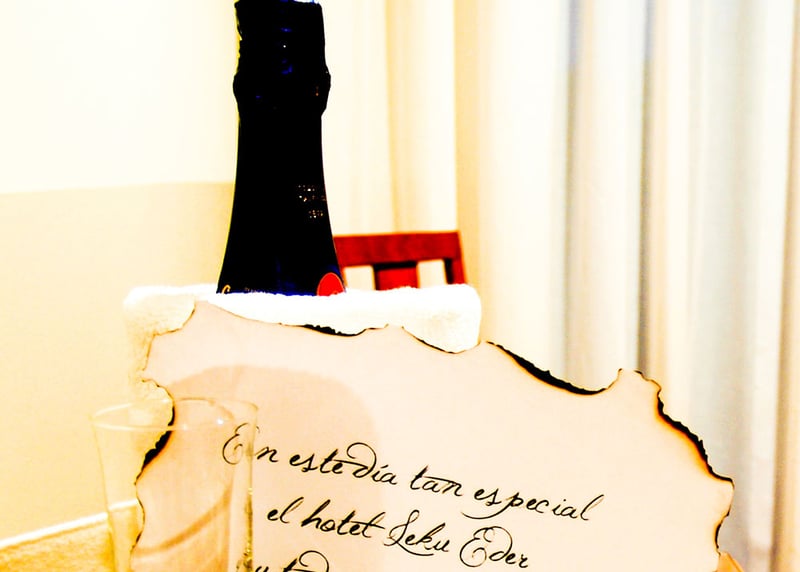 En este día tan especial
el hotel Leku Eder